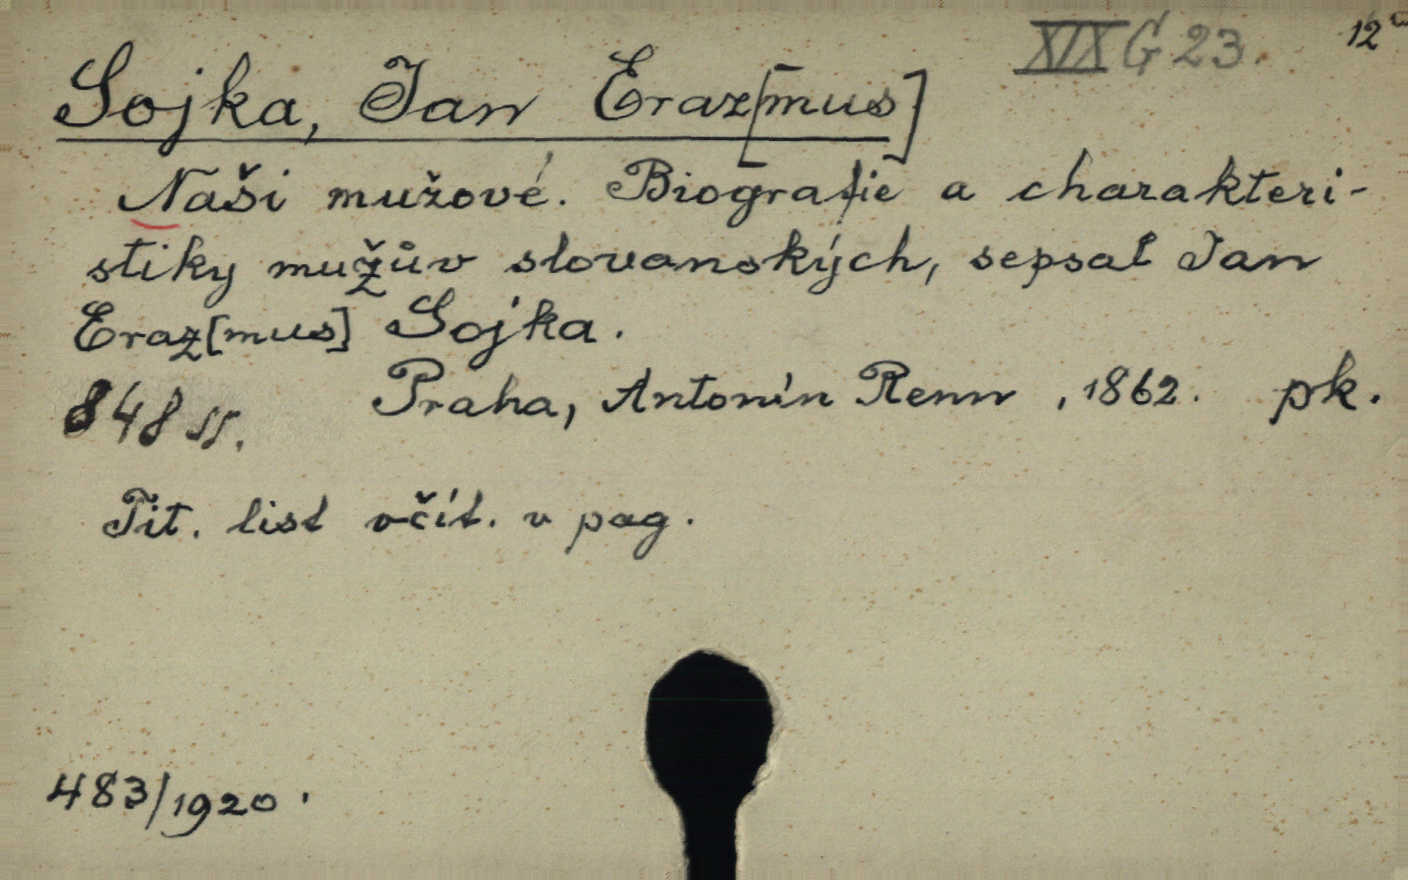 XIX G 23. 12°
Sojka, Jan Eraz[mus]
Naši mužové. Biografie a charakteri-
stiky mužův slovanských, sepsal Jan
Eraz[mus] Sojka.
848 ss. Praha, Antonín Renn, 1862. pk.
Tit. list včít. v pag.
483/1920.